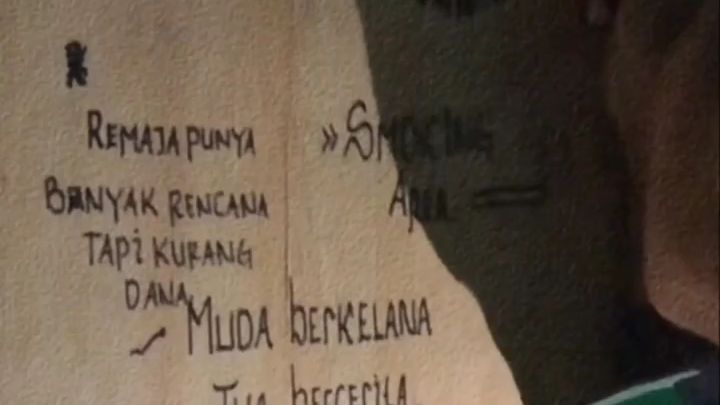 REMAJA PUNYA
BANYAK RENCANA
TAPi KURANG
DANA
» SMOKING
AREA
MUDA bERKELANA
TUA bERCERITA